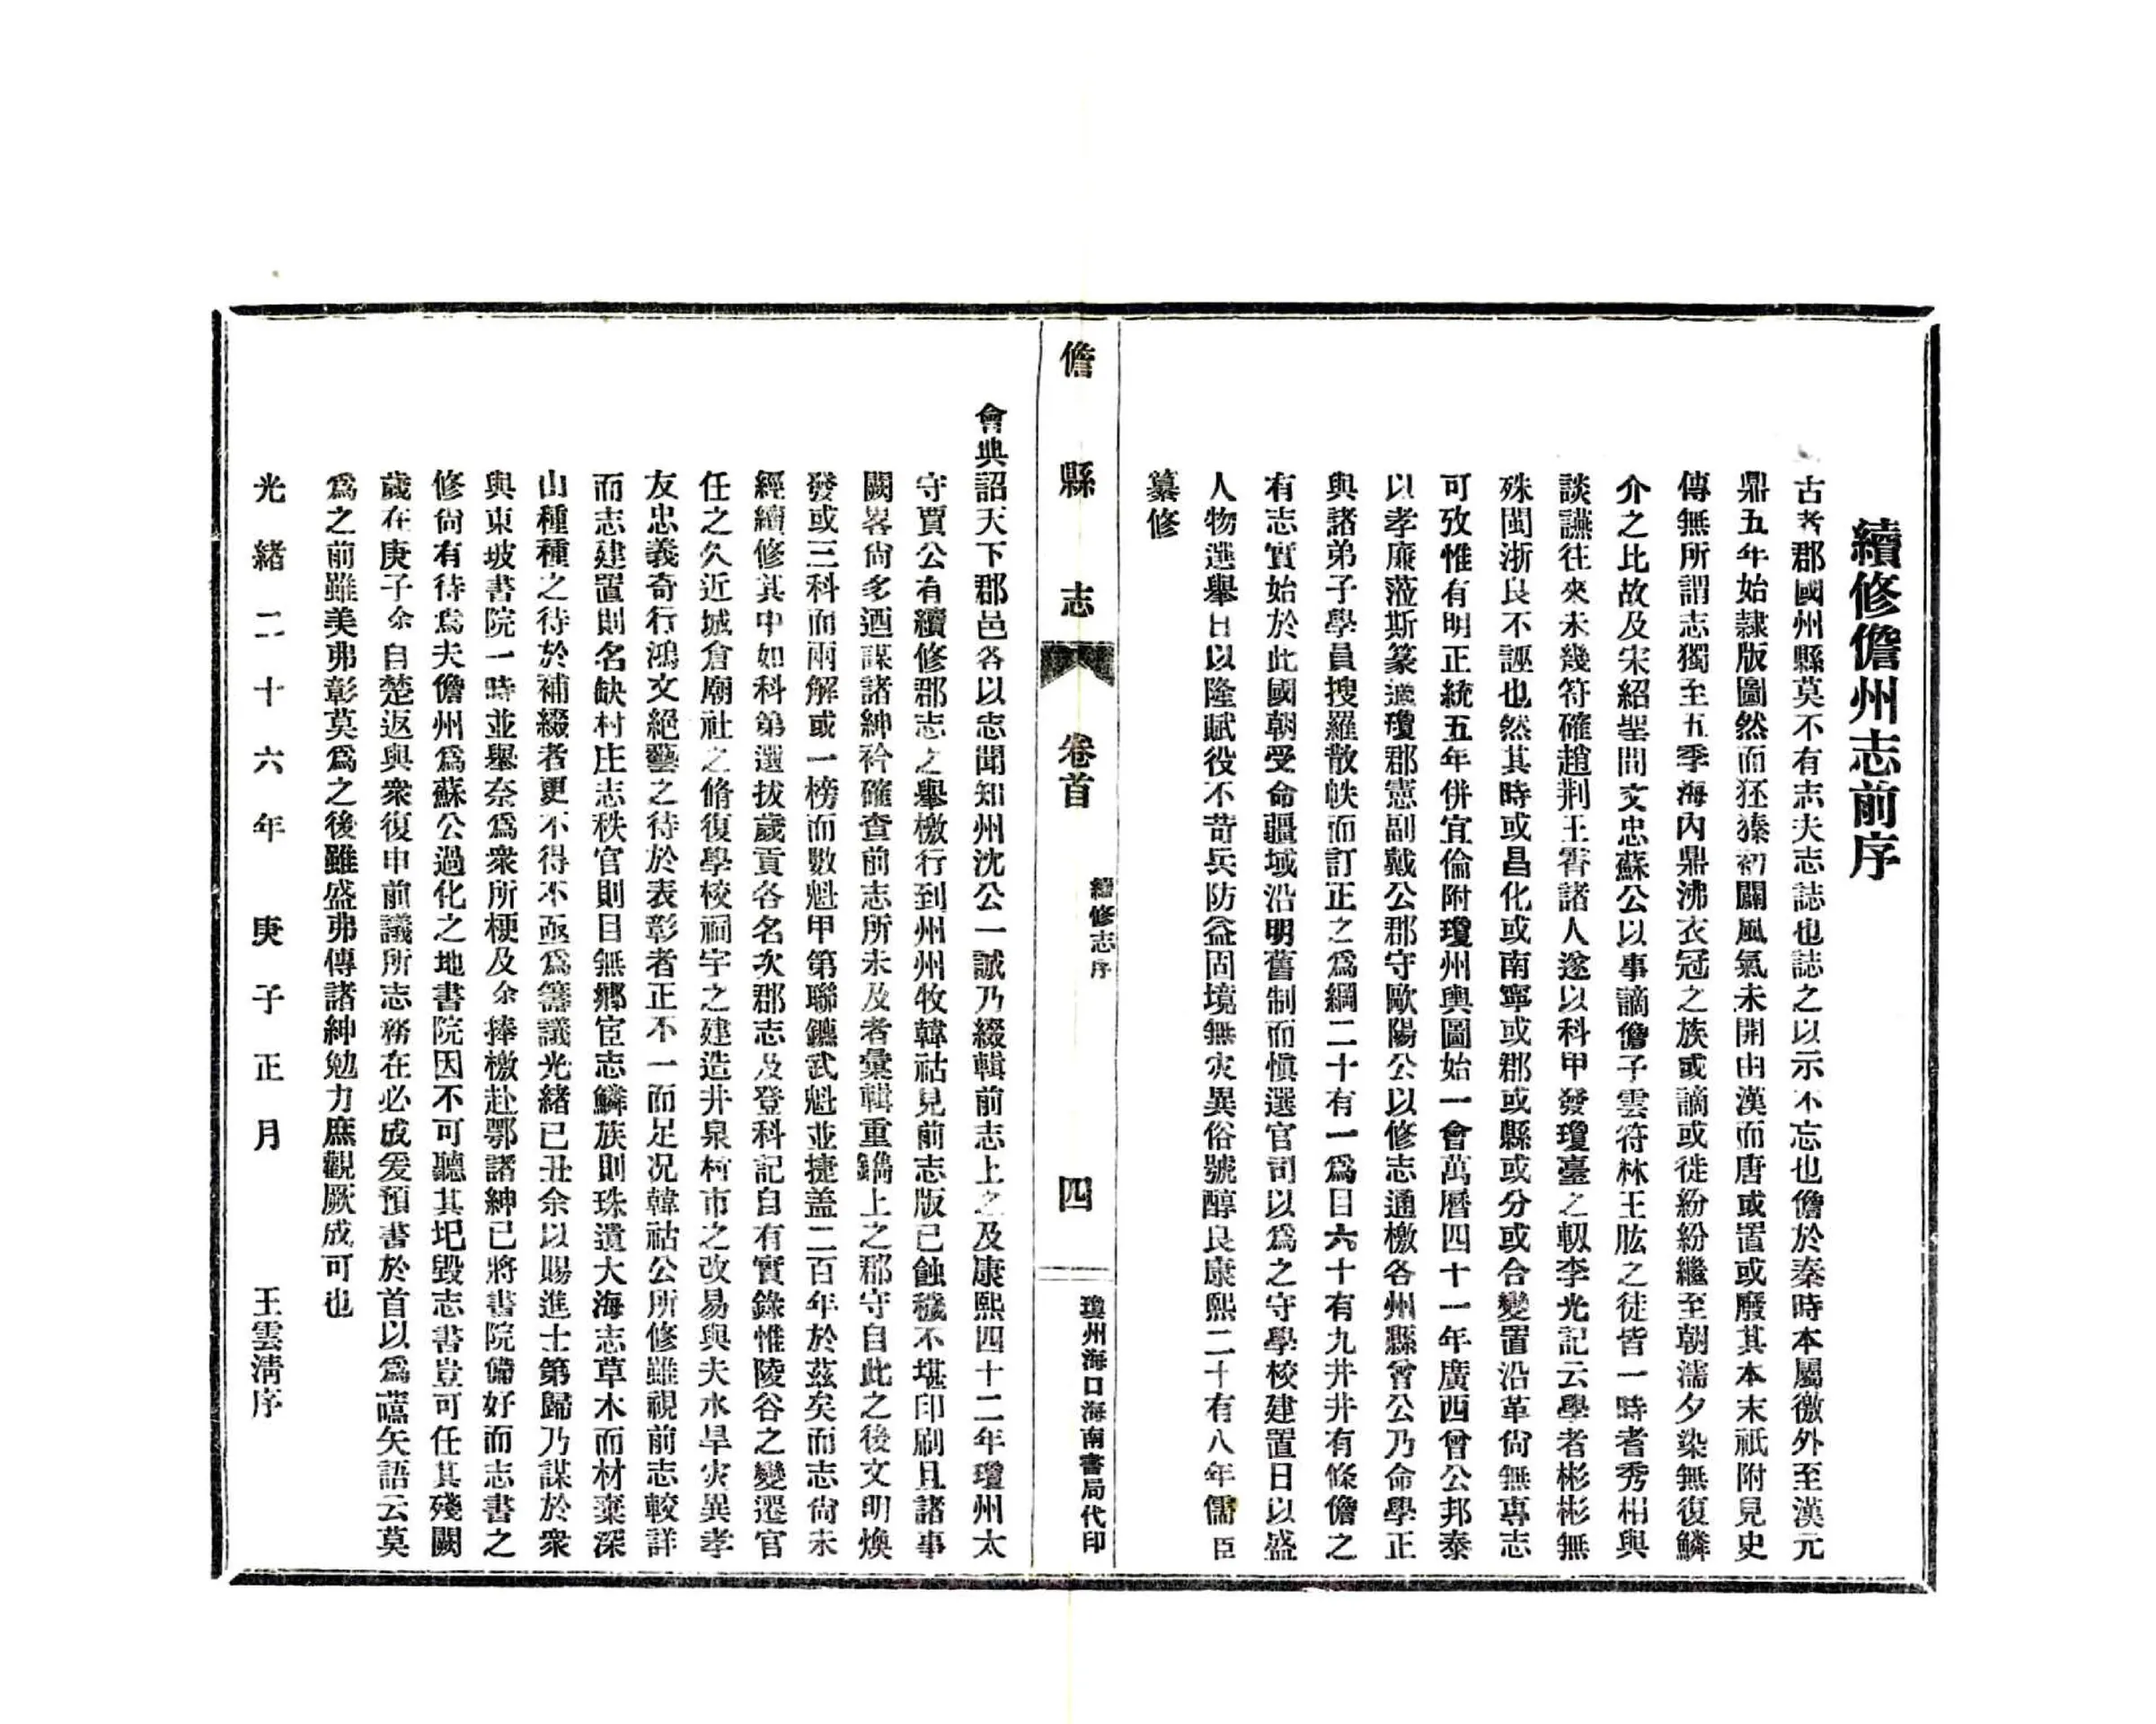 續修儋州志前序
古者郡國州縣莫不有志夫志誌也誌之以示不忘也儋於秦時本屬徼外至漢元
鼎五年始隷版圖然而狉獉初闢風氣未開由漢而唐或置或廢其本末祇附見史
傳無所謂志獨至五季海內鼎沸衣冠之族或謫或徙紛紛繼至朝濡夕染無復鱗
介之比故及宋紹聖間文忠蘇公以事謫儋子雲符林王肱之徒皆一時耆秀相與
談讌往來未幾符確趙荆王霄諸人遂以科甲發瓊臺之軔李光記云學者彬彬無
殊閩浙良不誣也然其時或昌化或南寧或郡或縣或分或合變置沿革尙無專志
可攷惟有明正統五年併宜倫附瓊州輿圖始一會萬曆四十一年廣西曾公邦泰
以孝廉蒞斯篆適瓊郡憲副戴公郡守歐陽公以修志通檄各州縣曾公乃命學正
與諸弟子學員搜羅散帙而訂正之爲綱二十有一爲目六十有九井井有條儋之
有志實始於此國朝受命疆域沿明舊制而愼選官司以爲之守學校建置日以盛
人物選舉日以隆賦役不苛兵防益固境無灾異俗號醇良康熙二十有八年儒臣
纂修
儋縣志
卷首
續修志序
四
瓊州海口海南書局代印
會典詔天下郡邑各以志聞知州沈公一誠乃綴輯前志上之及康熙四十二年瓊州太
守賈公有續修郡志之舉檄行到州州牧韓祜見前志版已蝕穢不堪印刷且諸事
闕畧尙多迺謀諸紳衿確查前志所未及者彙輯重鐫上之郡守自此之後文明煥
發或三科而兩解或一榜而數魁甲第聯鑣武魁並捷盖二百年於茲矣而志尙未
經續修其中如科第選拔歲貢各名次郡志及登科記自有實錄惟陵谷之變遷官
任之久近城倉廟社之脩復學校祠宇之建造井泉村市之改易與夫水旱灾異孝
友忠義奇行鴻文絕藝之待於表彰者正不一而足况韓祜公所修雖視前志較詳
而志建置則名缺村庄志秩官則目無鄉宦志鱗族則珠遺大海志草木而材棄深
山種種之待於補綴者更不得不亟爲籌議光緒已丑余以賜進士第歸乃謀於衆
與東坡書院一時並舉奈爲衆所梗及余捧檄赴鄂諸紳已將書院備好而志書之
修尙有待焉夫儋州爲蘇公過化之地書院因不可聽其圯毀志書豈可任其殘闕
歲在庚子余自楚返與衆復申前議所志務在必成爰預書於首以爲嚆矢語云莫
爲之前雖美弗彰莫爲之後雖盛弗傳諸紳勉力庶觀厥成可也
光緒二十六年　庚子正月　王雲淸序